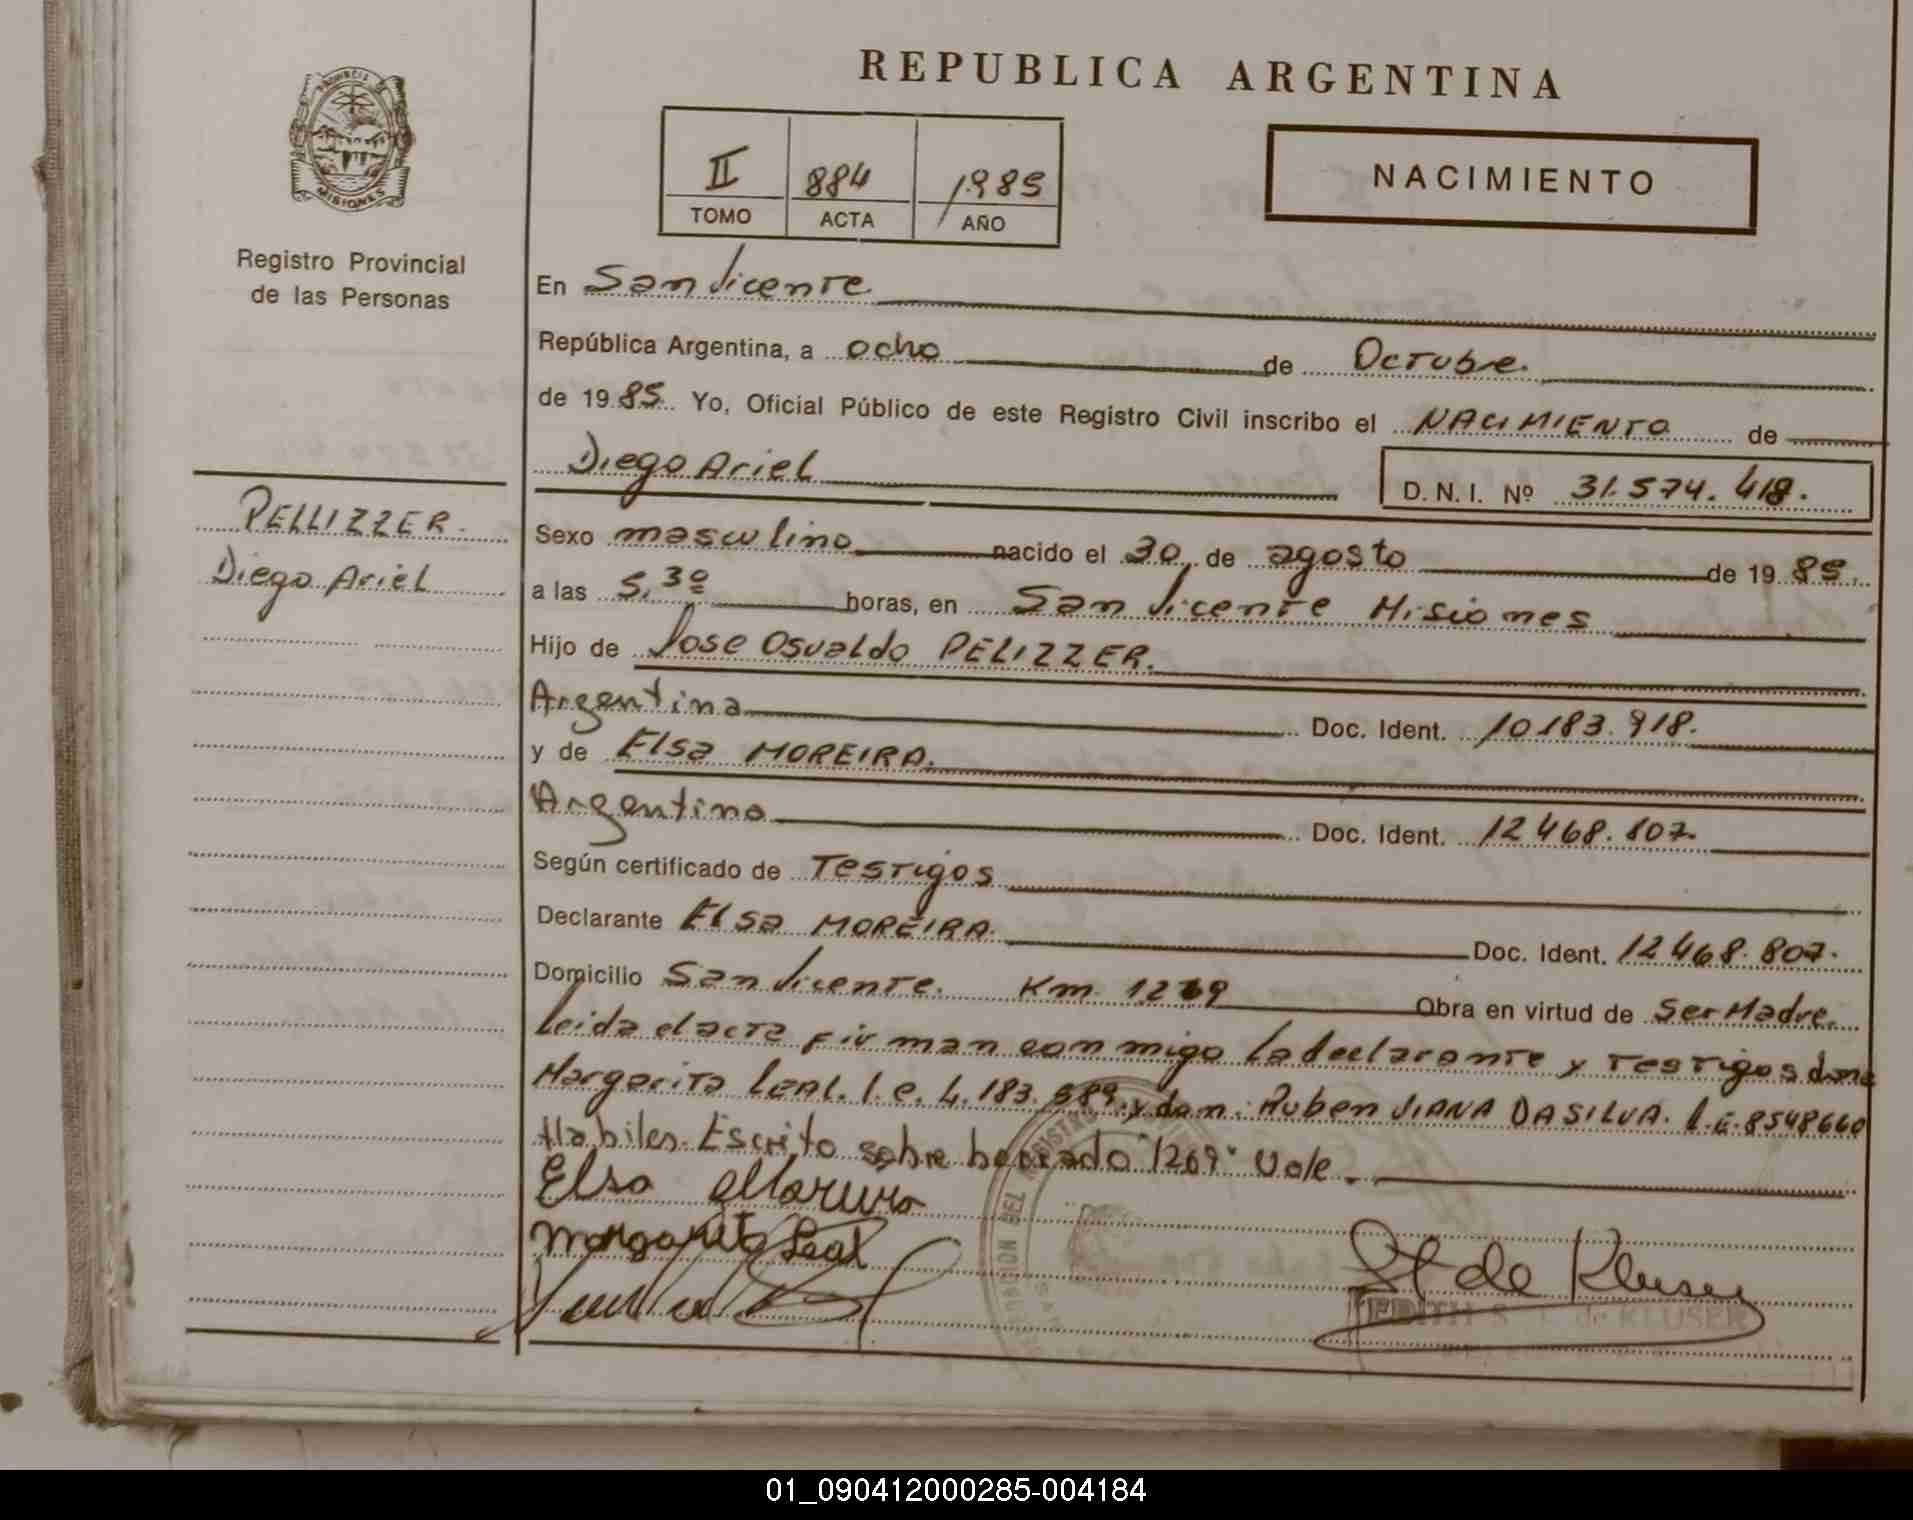 REPUBLICA ARGENTINA
PROVINCIA DE
MISIONES
Registro Provincial
de las Personas
II 884 1985
TOMO ACTA AÑO
NACIMIENTO
En San Vicente
República Argentina, a ocho de Octubre.
de 1985. Yo, Oficial Público de este Registro Civil inscribo el NACIMIENTO de
Diego Ariel
D. N. I. Nº 31.574.418.
PELLIZZER.
Diego Ariel
Sexo masculino nacido el 30 de agosto de 1985.
a las 5,30 horas, en San Vicente Misiones
Hijo de Jose Osvaldo PELIZZER.
Argentina Doc. Ident. 10183.918.
y de Elsa MOREIRA.
Argentina Doc. Ident. 12468.807.
Según certificado de Testigos
Declarante Elsa MOREIRA. Doc. Ident. 12468.807.
Domicilio San Vicente. Km. 1269 Obra en virtud de Ser Madre.
Leida el acta firman conmigo la declarante y Testigos doña
Margarita Leal. l.c. 4.183.589. y don: Ruben VIANA DASILVA. l.E. 8548660
Habiles. Escrito sobre borrado "1269" Vale.
Elsa Moreira
Margarita Leal
de Kluser
EDITH S de KLUSER
01_090412000285-004184